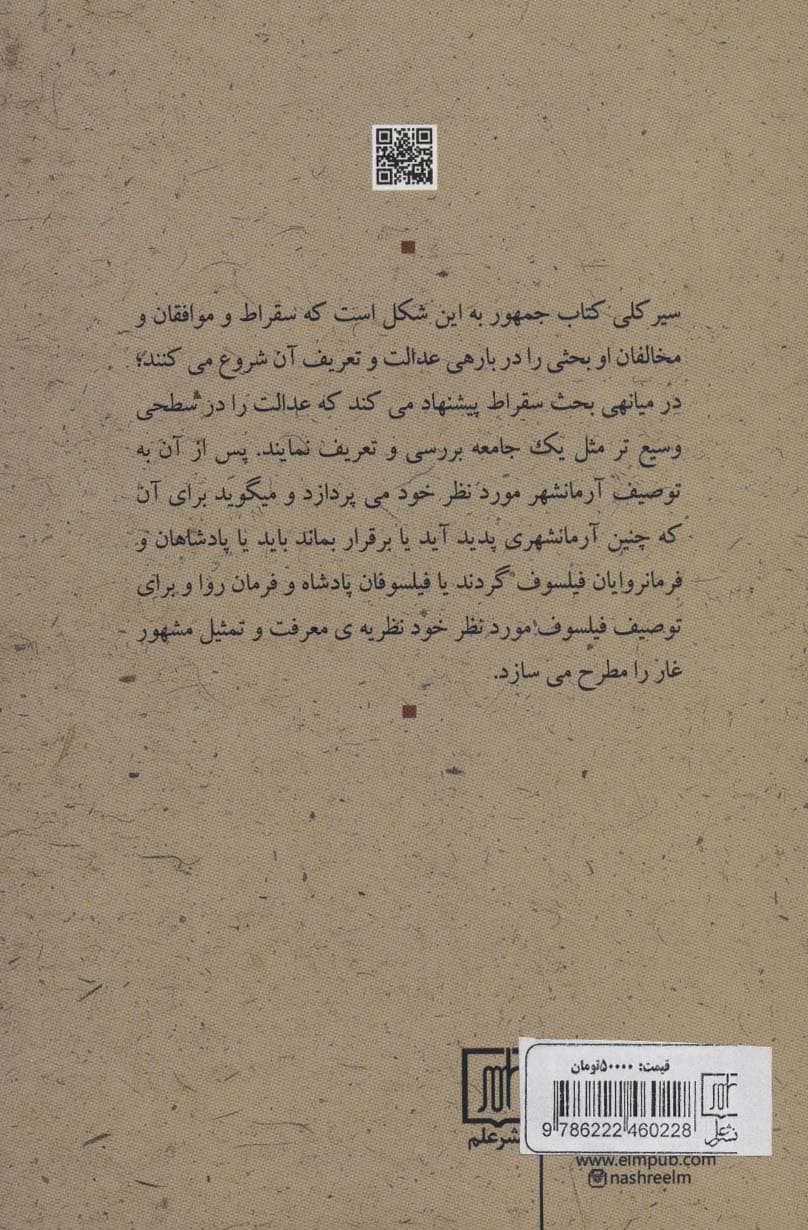 سیر کلی کتاب جمهور به این شکل است که سقراط و موافقان و
مخالفان او بحثی را در بارهی عدالت و تعریف آن شروع می کنند؛
در میانهی بحث سقراط پیشنهاد می کند که عدالت را در سطحی
وسیع تر مثل یک جامعه بررسی و تعریف نمایند. پس از آن به
توصیف آرمانشهر مورد نظر خود می پردازد و میگوید برای آن
که چنین آرمانشهری پدید آید یا برقرار بماند باید یا پادشاهان و
فرمانروایان فیلسوف گردند یا فیلسوفان پادشاه و فرمان روا و برای
توصیف فیلسوف مورد نظر خود نظریه ی معرفت و تمثیل مشهور
غار را مطرح می سازد.
قیمت: ۵۰۰۰۰تومان
9 786222 460228
نشر علم
شرعلم
www.elmpub.com
nashreelm